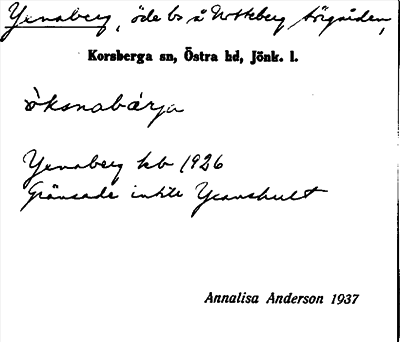 Yxnaberg, öde bs å Nötteberg Sörgården,
Korsberga sn, Östra hd, Jönk. l.
òksnabárja
Yxnaberg kb 1926
Gränsade intill Yxanshult
Annalisa Anderson 1937